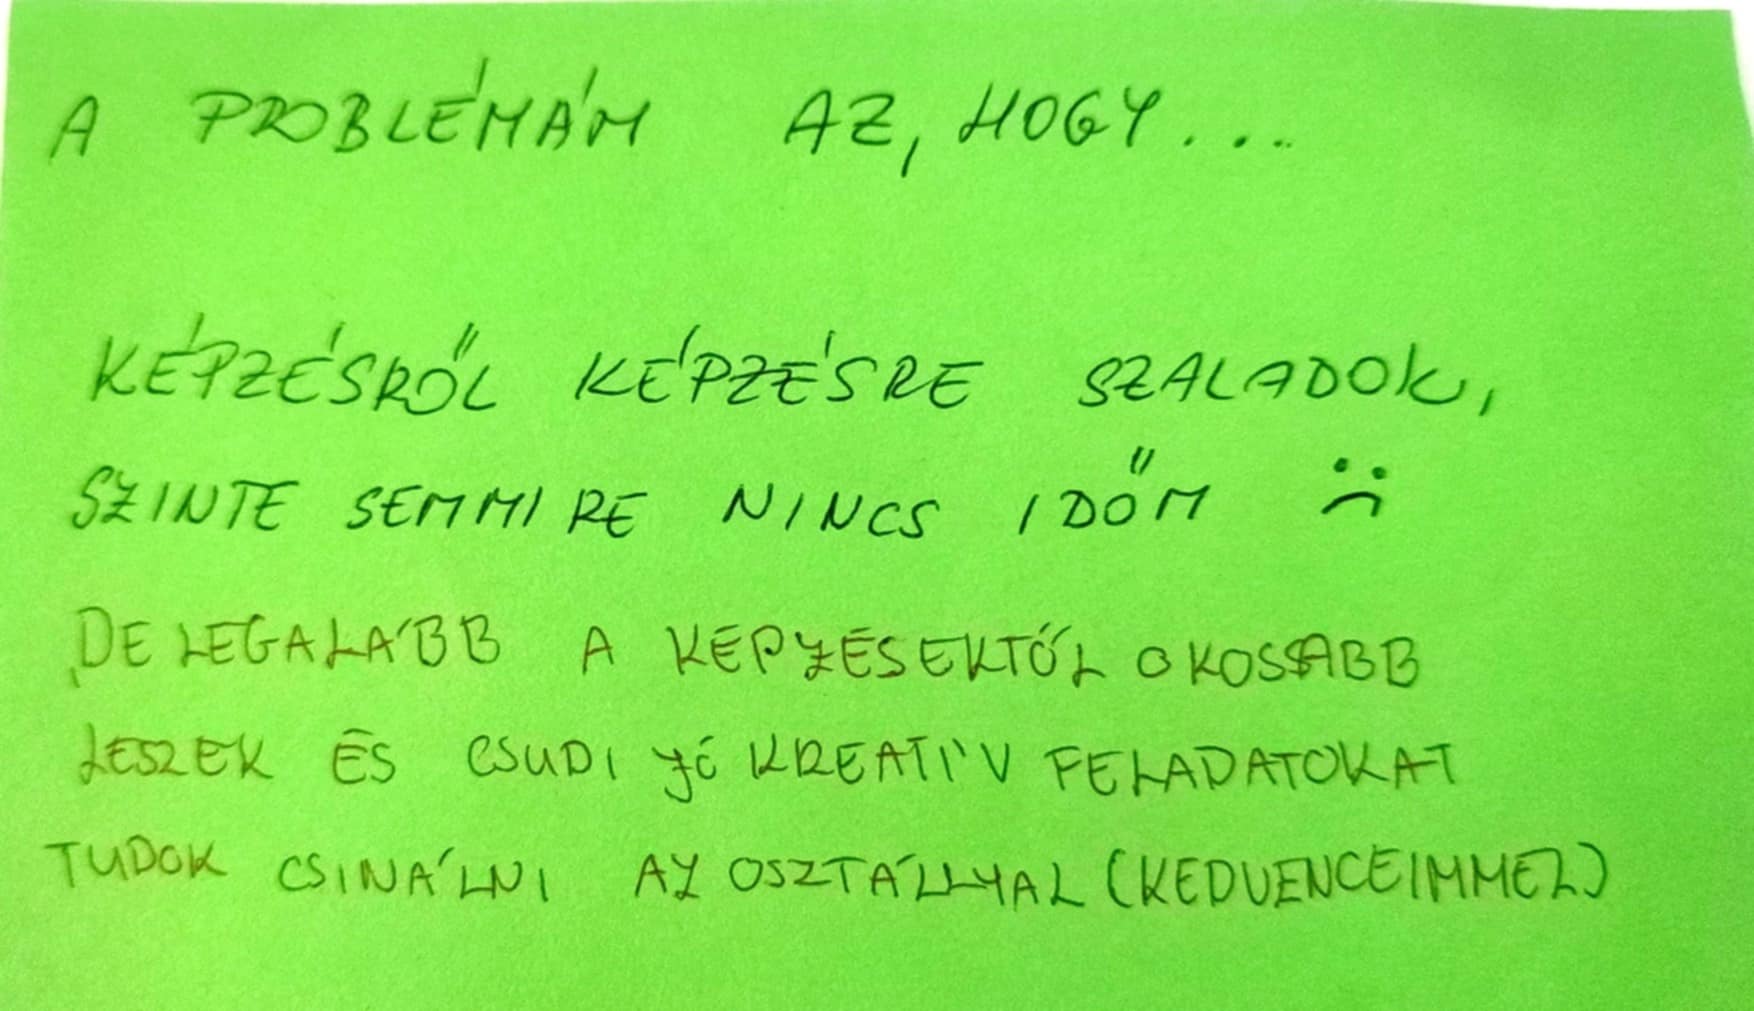 A PROBLÉMÁM AZ, HOGY...
KÉPZÉSRŐL KÉPZÉSRE SZALADOK,
SZINTE SEMMIRE NINCS IDŐM :(
DE LEGALÁBB A KÉPZÉSEKTŐL OKOSABB
LESZEK ÉS CSUDI JÓ KREATÍV FELADATOKAT
TUDOK CSINÁLNI AZ OSZTÁLLYAL (KEDVENCEIMMEL)